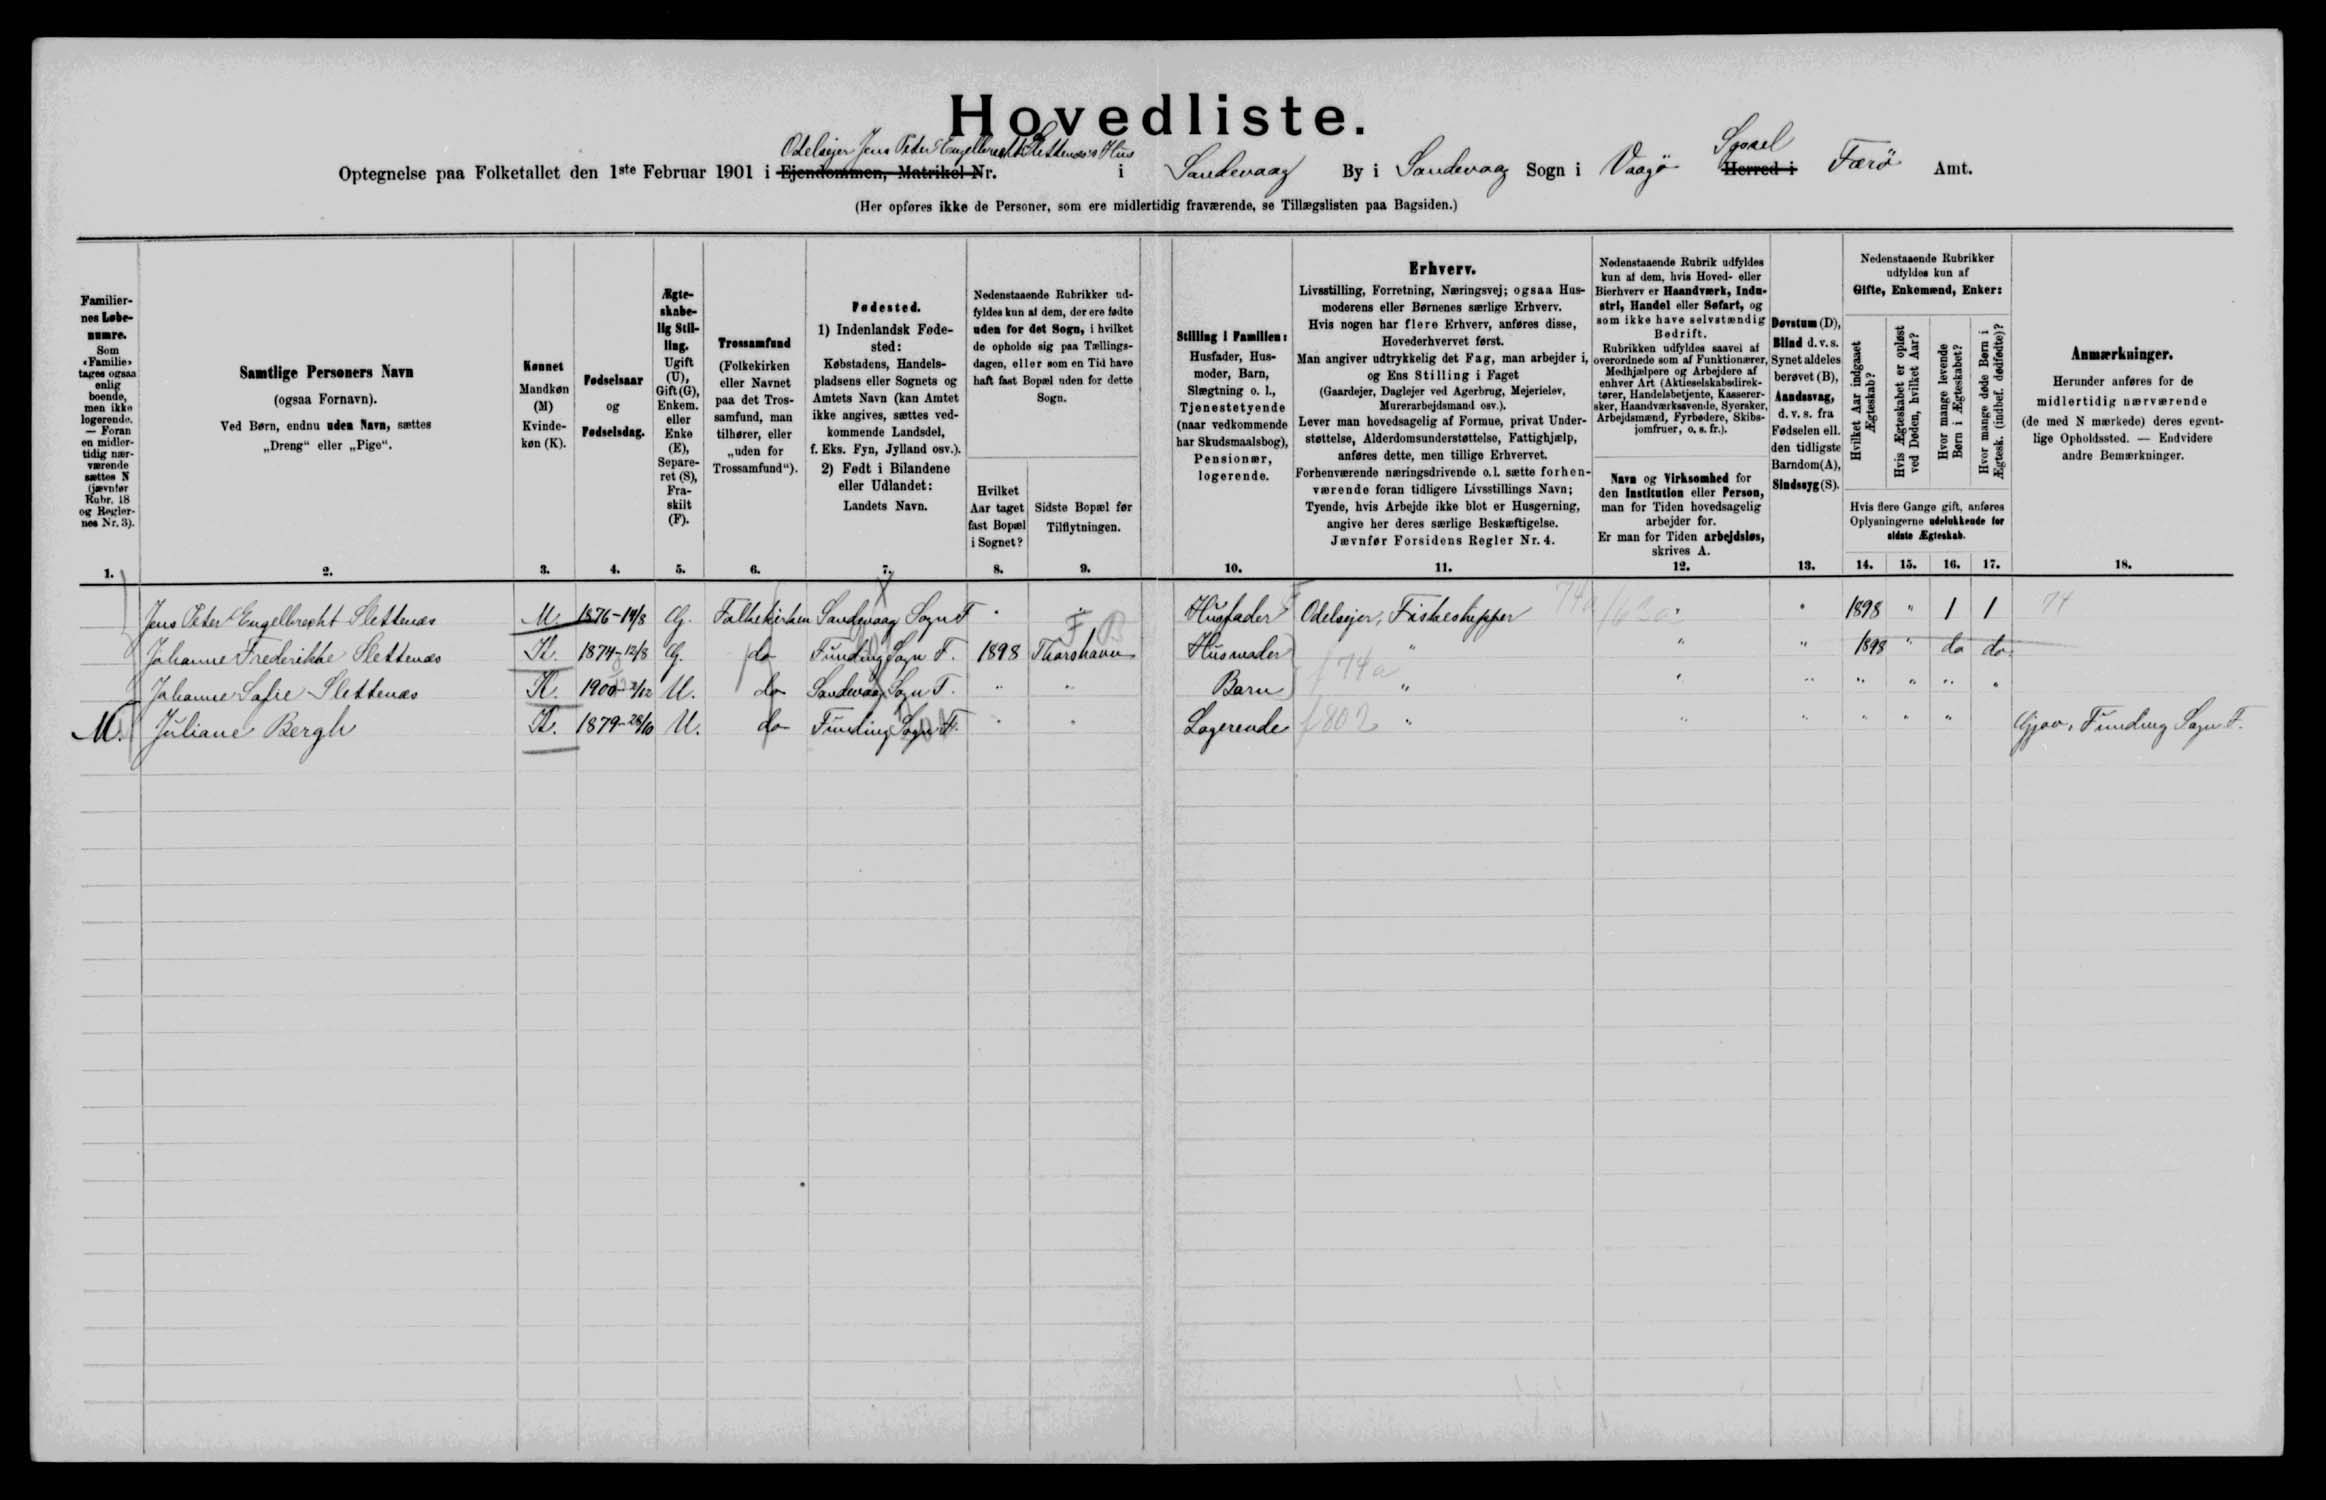 Hovedliste.
Odelsejer Jens Peter Engelbrecht Slettenæs's Hus
Syssel
Optegnelse paa Folketallet den 1ste Februar 1901 i Ejendommen, Matrikel Nr. i Sandevaag By i Sandevaag Sogn i Vaagø Herred i Færø Amt.
(Her opføres ikke de Personer, som ere midlertidig fraværende, se Tillægslisten paa Bagsiden.)
Familier-
nes Løbe-
numre.
Som
«Familie»
tages ogsaa
enlig
boende,
men ikke
logerende.
— Foran
en midler-
tidig nær-
værende
sættes N
(jævnfør
Rubr. 18
og Regler-
nes Nr. 3).
1.
Samtlige Personers Navn
(ogsaa Fornavn).
Ved Børn, endnu uden Navn, sættes
„Dreng“ eller „Pige“.
2.
Kønnet
Mandkøn
(M)
Kvinde-
køn (K).
3.
Fødselsaar
og
Fødselsdag.
4.
Ægte-
skabe-
lig Stil-
ling.
Ugift
(U),
Gift (G),
Enkem.
eller
Enke
(E),
Separe-
ret (S),
Fra-
skilt
(F).
5.
Trossamfund
(Folkekirken
eller Navnet
paa det Tros-
samfund, man
tilhører, eller
„uden for
Trossamfund“).
6.
Fødested.
1) Indenlandsk Føde-
sted:
Købstadens, Handels-
pladsens eller Sognets og
Amtets Navn (kan Amtet
ikke angives, sættes ved-
kommende Landsdel,
f. Eks. Fyn, Jylland osv.).
2) Født i Bilandene
eller Udlandet:
Landets Navn.
7.
Nedenstaaende Rubrikker ud-
fyldes kun af dem, der ere fødte
uden for det Sogn, i hvilket
de opholde sig paa Tællings-
dagen, eller som en Tid have
haft fast Bopæl uden for dette
Sogn.
Hvilket
Aar taget
fast Bopæl
i Sognet?
8.
Sidste Bopæl før
Tilflytningen.
9.
Stilling i Familien:
Husfader, Hus-
moder, Barn,
Slægtning o. l.,
Tjenestetyende
(naar vedkommende
har Skudsmaalsbog),
Pensionær,
logerende.
10.
Erhverv.
Livsstilling, Forretning, Næringsvej; ogsaa Hus-
moderens eller Børnenes særlige Erhverv.
Hvis nogen har flere Erhverv, anføres disse,
Hovederhvervet først.
Man angiver udtrykkelig det Fag, man arbejder i,
og Ens Stilling i Faget
(Gaardejer, Daglejer ved Agerbrug, Mejerielev,
Murerarbejdsmand osv.).
Lever man hovedsagelig af Formue, privat Under-
støttelse, Alderdomsunderstøttelse, Fattighjælp,
anføres dette, men tillige Erhvervet.
Forhenværende næringsdrivende o. l. sætte forhen-
værende foran tidligere Livsstillings Navn;
Tyende, hvis Arbejde ikke blot er Husgerning,
angive her deres særlige Beskæftigelse.
Jævnfør Forsidens Regler Nr. 4.
11.
Nedenstaaende Rubrik udfyldes
kun af dem, hvis Hoved- eller
Bierhverv er Haandværk, Indu-
stri, Handel eller Søfart, og
som ikke have selvstændig
Bedrift.
Rubrikken udfyldes saavel af
overordnede som af Funktionærer,
Medhjælpere og Arbejdere af
enhver Art (Aktieselskabsdirek-
tører, Handelsbetjente, Kasserer-
sker, Haandværkssvende, Syersker,
Arbejdsmænd, Fyrbødere, Skibs-
jomfruer, o. s. fr.).
Navn og Virksomhed for
den Institution eller Person,
man for Tiden hovedsagelig
arbejder for.
Er man for Tiden arbejdsløs,
skrives A.
12.
Døvstum (D),
Blind d. v. s.
Synet aldeles
berøvet (B),
Aandssvag,
d. v. s. fra
Fødselen ell.
den tidligste
Barndom (A),
Sindssyg (S).
13.
Nedenstaaende Rubrikker
udfyldes kun af
Gifte, Enkemænd, Enker:
Hvilket Aar indgaaet
Ægteskab?
Hvis Ægteskabet er opløst
ved Døden, hvilket Aar?
Hvor mange levende
Børn i Ægteskabet?
Hvor mange døde Børn i
Ægtesk. (indbef. dødfødte)?
Hvis flere Gange gift, anføres
Oplysningerne udelukkende for
sidste Ægteskab.
14. 15. 16. 17.
Anmærkninger.
Herunder anføres for de
midlertidig nærværende
(de med N mærkede) deres egent-
lige Opholdssted. — Endvidere
andre Bemærkninger.
18.
Jens Peter Engelbrecht Slettenæs M. 1876-14/8 G. Folkekirken Sandevaag Sogn F " " Husfader Odelsejer, Fiskeskipper " " 1898 " 1 1 74
Johanne Frederikke Slettenæs K. 1874-12/8 G. do Funding Sogn F. 1898 Thorshavn Husmoder " " " 1898 " do do
Johanne Sofie Slettenæs K. 1900-2/12 U. do Sandevaag Sogn F. " " Barn 74a " " " " " " "
N. Juliane Bergh K. 1879-28/10 U. do Funding Sogn F. " " Logerende 802 " " " " " " Gjov, Funding Sogn F.